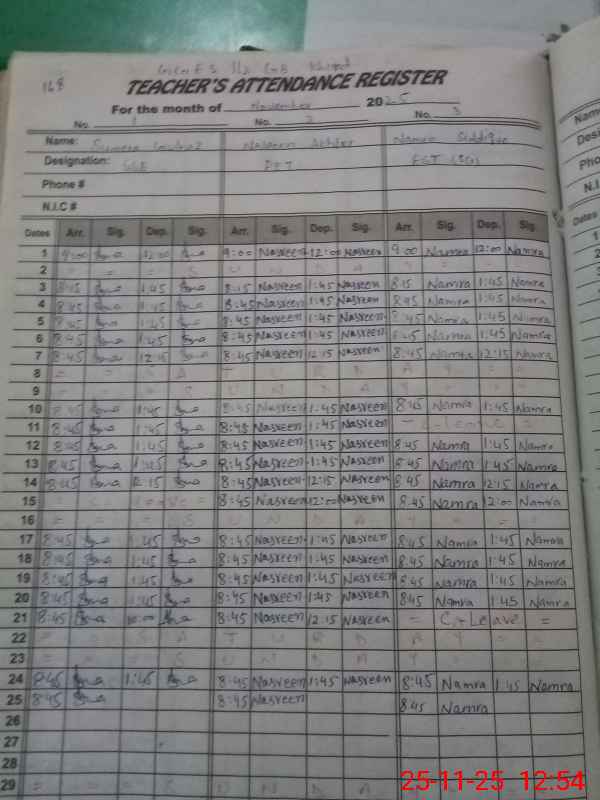 168
TEACHER'S ATTENDANCE REGISTER
For the month of November 2025
No. 1 No. 2 No. 3
Name: Nasreen Akhter
Designation: SSE
Phone #
N.I.C #
Dates Arr. Sig. Dep. Sig. Arr. Sig. Dep. Sig. Arr. Sig. Dep. Sig.
1 9:00 12:00 9:00 Nasreen 12:00 Nasreen 9:00 Namra 12:00 Namra
2 = = = S U N D A Y = = =
3 8:45 1:45 8:15 Nasreen 1:45 Nasreen 8:15 Namra 1:45 Namra
4 8:45 1:45 8:45 Nasreen 1:45 Nasreen 8:45 Namra 1:45 Namra
5 8:45 1:45 8:45 Nasreen 1:45 Nasreen 8:45 Namra 1:45 Namra
6 8:45 1:45 8:45 Nasreen 1:45 Nasreen 8:45 Namra 1:45 Namra
7 8:45 12:15 8:45 Nasreen 12:15 Nasreen 8:45 Namra 12:15 Namra
8 = = = S A T U R D A Y = =
9 = = = S U N D A Y = = =
10 8:45 1:45 8:45 Nasreen 1:45 Nasreen 8:45 Namra 1:45 Namra
11 8:45 1:45 8:45 Nasreen 1:45 Nasreen
12 8:45 1:45 8:45 Nasreen 1:45 Nasreen 8:45 Namra 1:45 Namra
13 8:45 1:45 8:45 Nasreen 1:45 Nasreen 8:45 Namra 1:45 Namra
14 8:45 12:15 8:45 Nasreen 12:15 Nasreen 8:45 Namra 12:15 Namra
15 8:45 Nasreen 12:00 Nasreen 8:45 Namra 12:00 Namra
16 = = = S U N D A Y = = =
17 8:45 1:45 8:45 Nasreen 1:45 Nasreen 8:45 Namra 1:45 Namra
18 8:45 1:45 8:45 Nasreen 1:45 Nasreen 8:45 Namra 1:45 Namra
19 8:45 1:45 8:45 Nasreen 1:45 Nasreen 8:45 Namra 1:45 Namra
20 8:45 1:45 8:45 Nasreen 1:45 Nasreen 8:45 Namra 1:45 Namra
21 8:45 10:00 8:45 Nasreen 12:15 Nasreen = C-Leave =
22 = = S A T U R D A Y = =
23 = = = S U N D A Y = = =
24 8:45 1:45 8:45 Nasreen 1:45 Nasreen 8:45 Namra 1:45 Namra
25 8:45 8:45 Nasreen 8:45 Namra
26
27
28
29
25-11-25 12:54
Name
Desi
Pho
N.I.
Dates
1
2
3
4
5
6
7
8
9
10
11
12
13
14
15
16
17
18